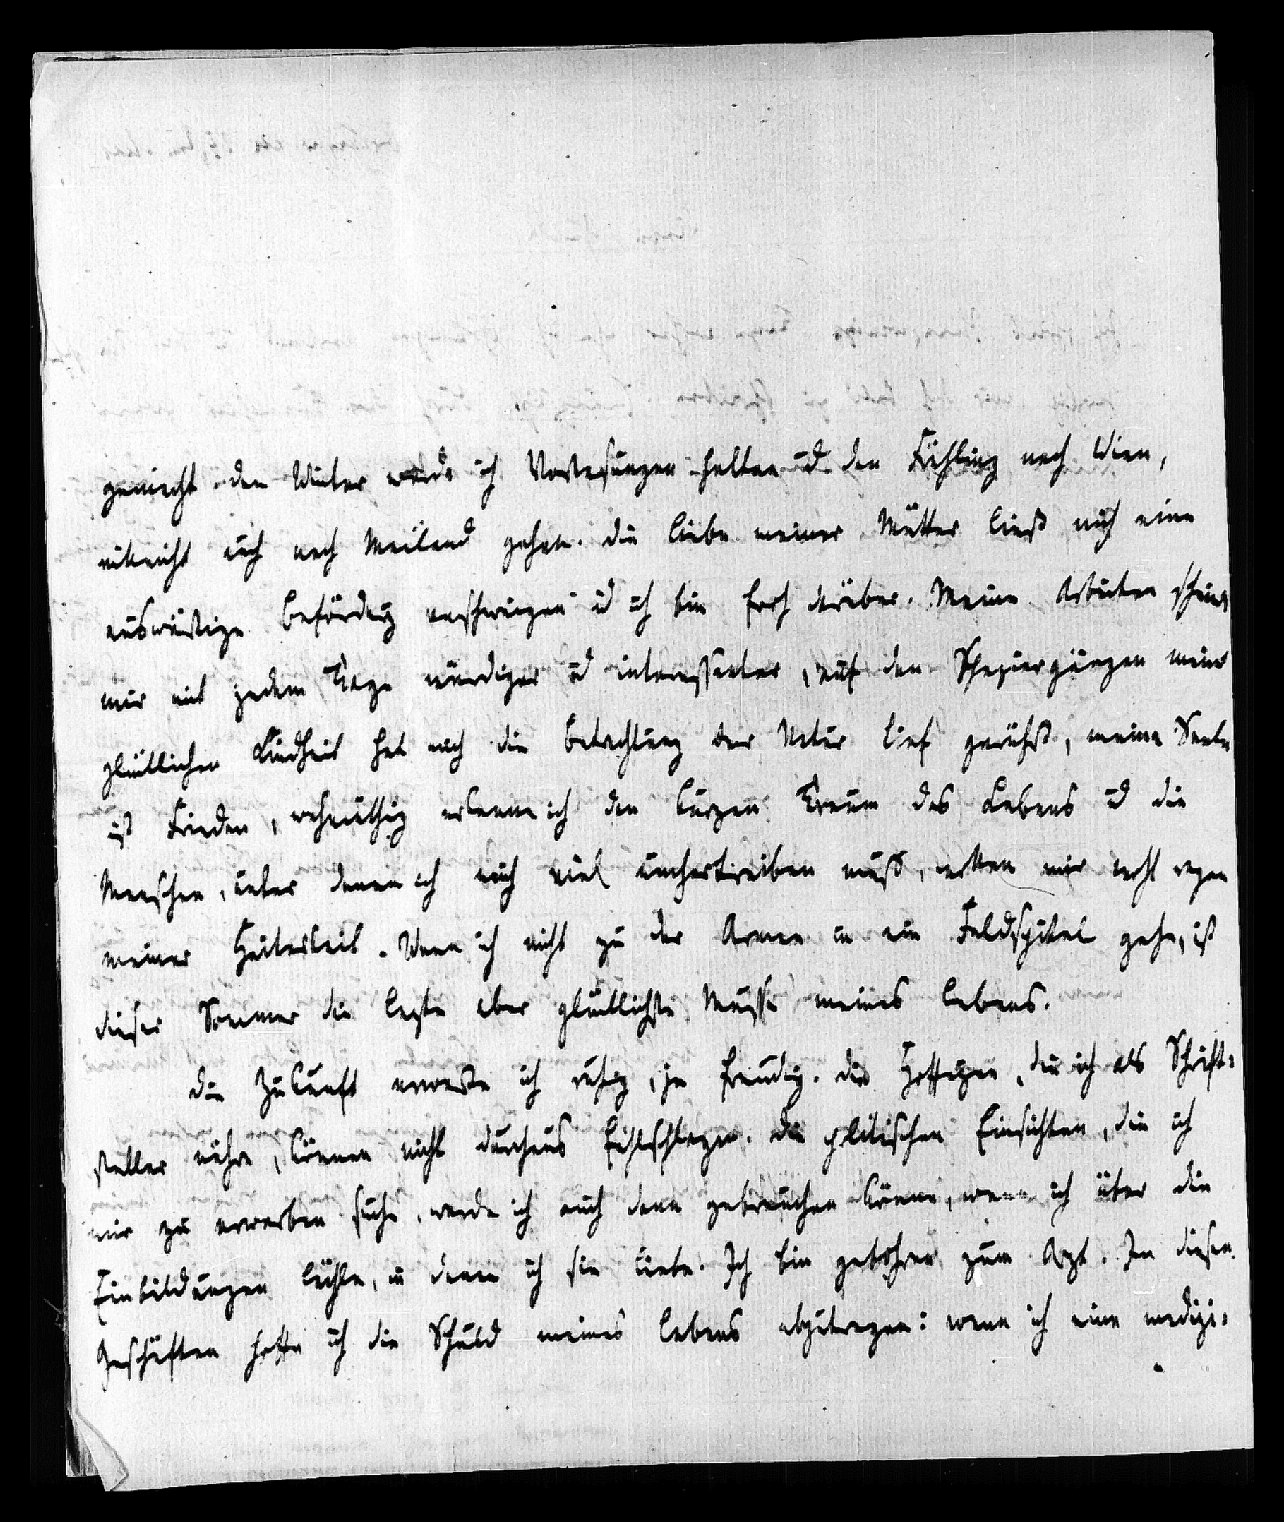 gemacht. den Winter werde ich Vorlesungen halten ud den Frühling nach Wien,
vielleicht auch nach Meiland gehen. die Liebe meiner Mutter ließ mich eine
auswärtige Beförderg verschweigen ud ich bin froh darüber. Meine Arbeiten scheinen
mir mit jedem Tage würdiger ud interessanter, auf den Spaziergängen meiner
glücklichen Kindheit hat mich die Betrachtung der Natur tief gerührt, meine Seele
ist Frieden, wehmüthig erkenne ich den kurzen Traum des Lebens ud die
Menschen, unter denen ich mich viel umhertreiben muß, mir recht wegen
meiner Heiterkeit. Wenn ich nicht zu der Armee in ein Feldspital gehe, ist
dieser Sommer die lezte aber glücklichste Musse meines Lebens.
die Zukunft erwarte ich ruhig, ja freudig. die Hoffngen, die ich als Schrift-
steller nähre, können nicht durchaus fehlschlagen. die politischen Einsichten, die ich
mir zu erwerben suche, werde ich auch dann gebrauchen können, wenn ich über die
Einbildungen lächle, in denen ich sie übte. Ich bin gebohren zum Arzt. In diesen
Geschäften hoffe ich die Schuld meines Lebens abzutragen: wenn ich eine medizi-